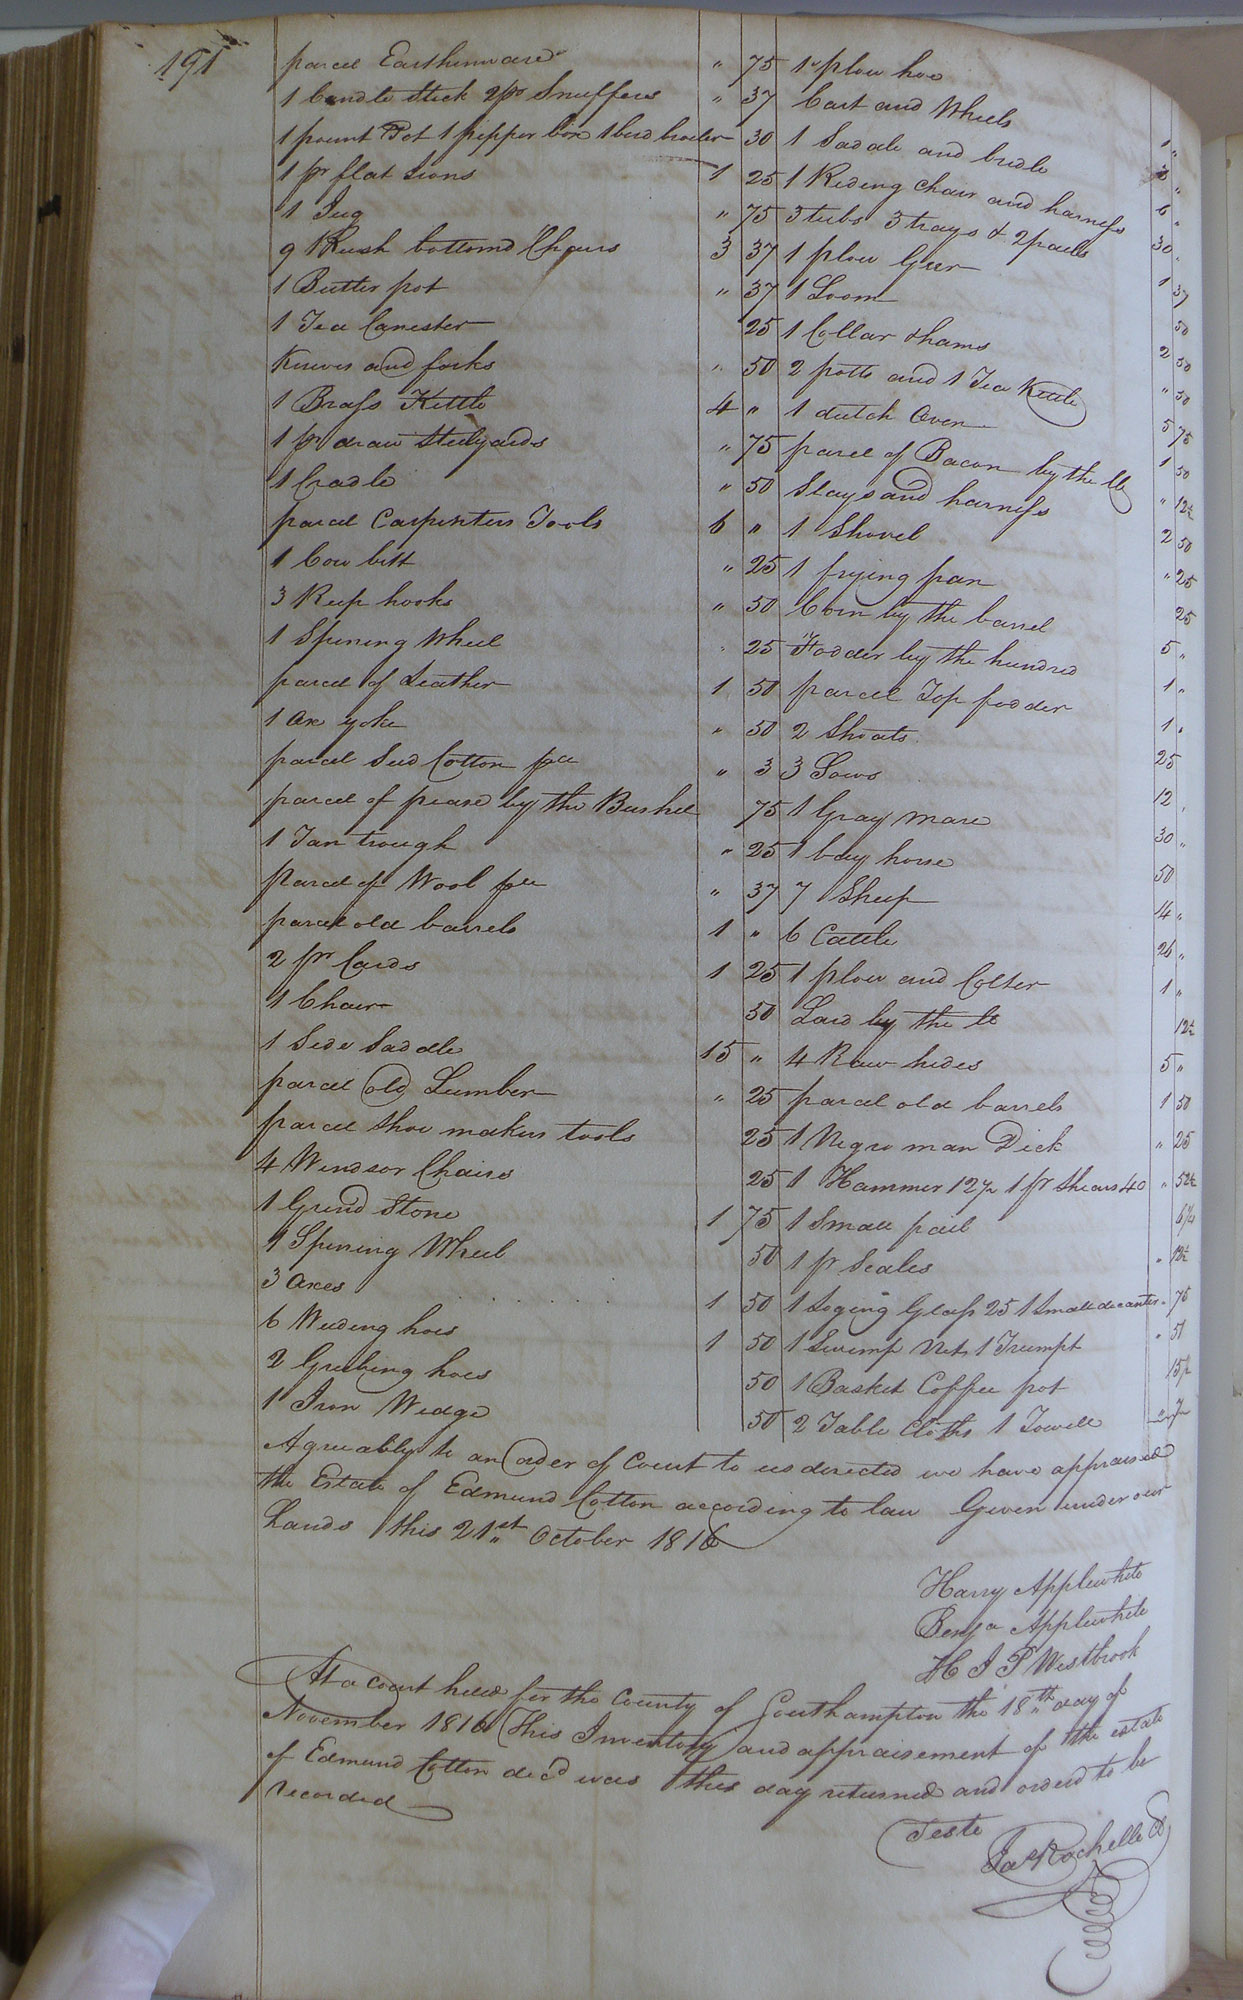 191
parcel Earthenware " 75
1 Candle Stick 2 pr Snuffers " 37
1 pount Pot 1 pepper box 1 bird broiler 30
1 pr flat Irons 1 25
1 Jug " 75
9 Rush bottomd Chairs 3 37
1 Butter pot " 37
1 Tea Canester 25
Knives and forks " 50
1 Brass Kettle 4 "
1 pr draw Steelyards " 75
1 Cradle " 50
parcel Carpenters Tools 6 "
1 Cow bell " 25
3 Reep hooks " 50
1 Spining Wheel " 25
parcel of Leather 1 50
1 ox yoke " 50
parcel Seed Cotton " 3
parcel of pease by the Bushel 75
1 Tan trough " 25
parcel of Wool " 37
parcel old barrels 1 "
2 pr Cards 1 25
1 Chair 50
1 Side Saddle 15 "
parcel old Lumber " 25
parcel Shoe makers tools 25
4 Windsor Chairs 25
1 Grind Stone 1 75
1 Spining Wheel 50
3 axes 1 50
6 Weeding hoes 1 50
2 Grubing hoes 50
1 Iron Wedge 50
1 plow hoe 1 "
Cart and Wheels "
1 Saddle and bridle 6 "
1 Riding Chair and harness 30 "
3 tubs 3 trays & 2 pails 1 37
1 plow Geer 50
1 Loom 2 50
1 Collar & hams " 50
2 potts and 1 Tea Kettle 5 75
1 dutch Oven 1 50
parcel of Bacon by the lb " 12½
Slays and harness 2 50
1 Shovel " 25
1 frying pan 25
Corn by the barrel 5 "
Fodder by the hundred 1 "
parcel Top fodder 1 "
2 Shoats 25
3 Sows 12
1 Gray mare 30 "
1 bay horse 50
7 Sheep 14 "
6 Cattle 26 "
1 plow and Colter 1 "
Lard by the lb 12½
4 Raw hides 5 "
parcel old barrels 1 50
1 Negro man Dick " 25
1 Hammer 12½ 1 pr Shears 40 " 52½
1 Small pail 6¼
1 pr Scales " 12½
1 Loging Glass 25 1 Small decanter " 75
1 Swimp Net, 1 Trumpt " 51
1 Basket Coffee pot
2 Table Cloths 1 Towell
Agreeably to an order of Court to us directed we have appraised
the Estate of Edmund Cotton according to law Given under our
hands this 21st October 1816
Harry Applewhite
Benja Applewhite
H J P Westbrook
At a Court held for the County of Southampton the 18th day of
November 1816 This Inventory and appraisement of the estate
of Edmund Cotton decd was this day returned and orderd to be
recorded
Teste
Ja Rochelle